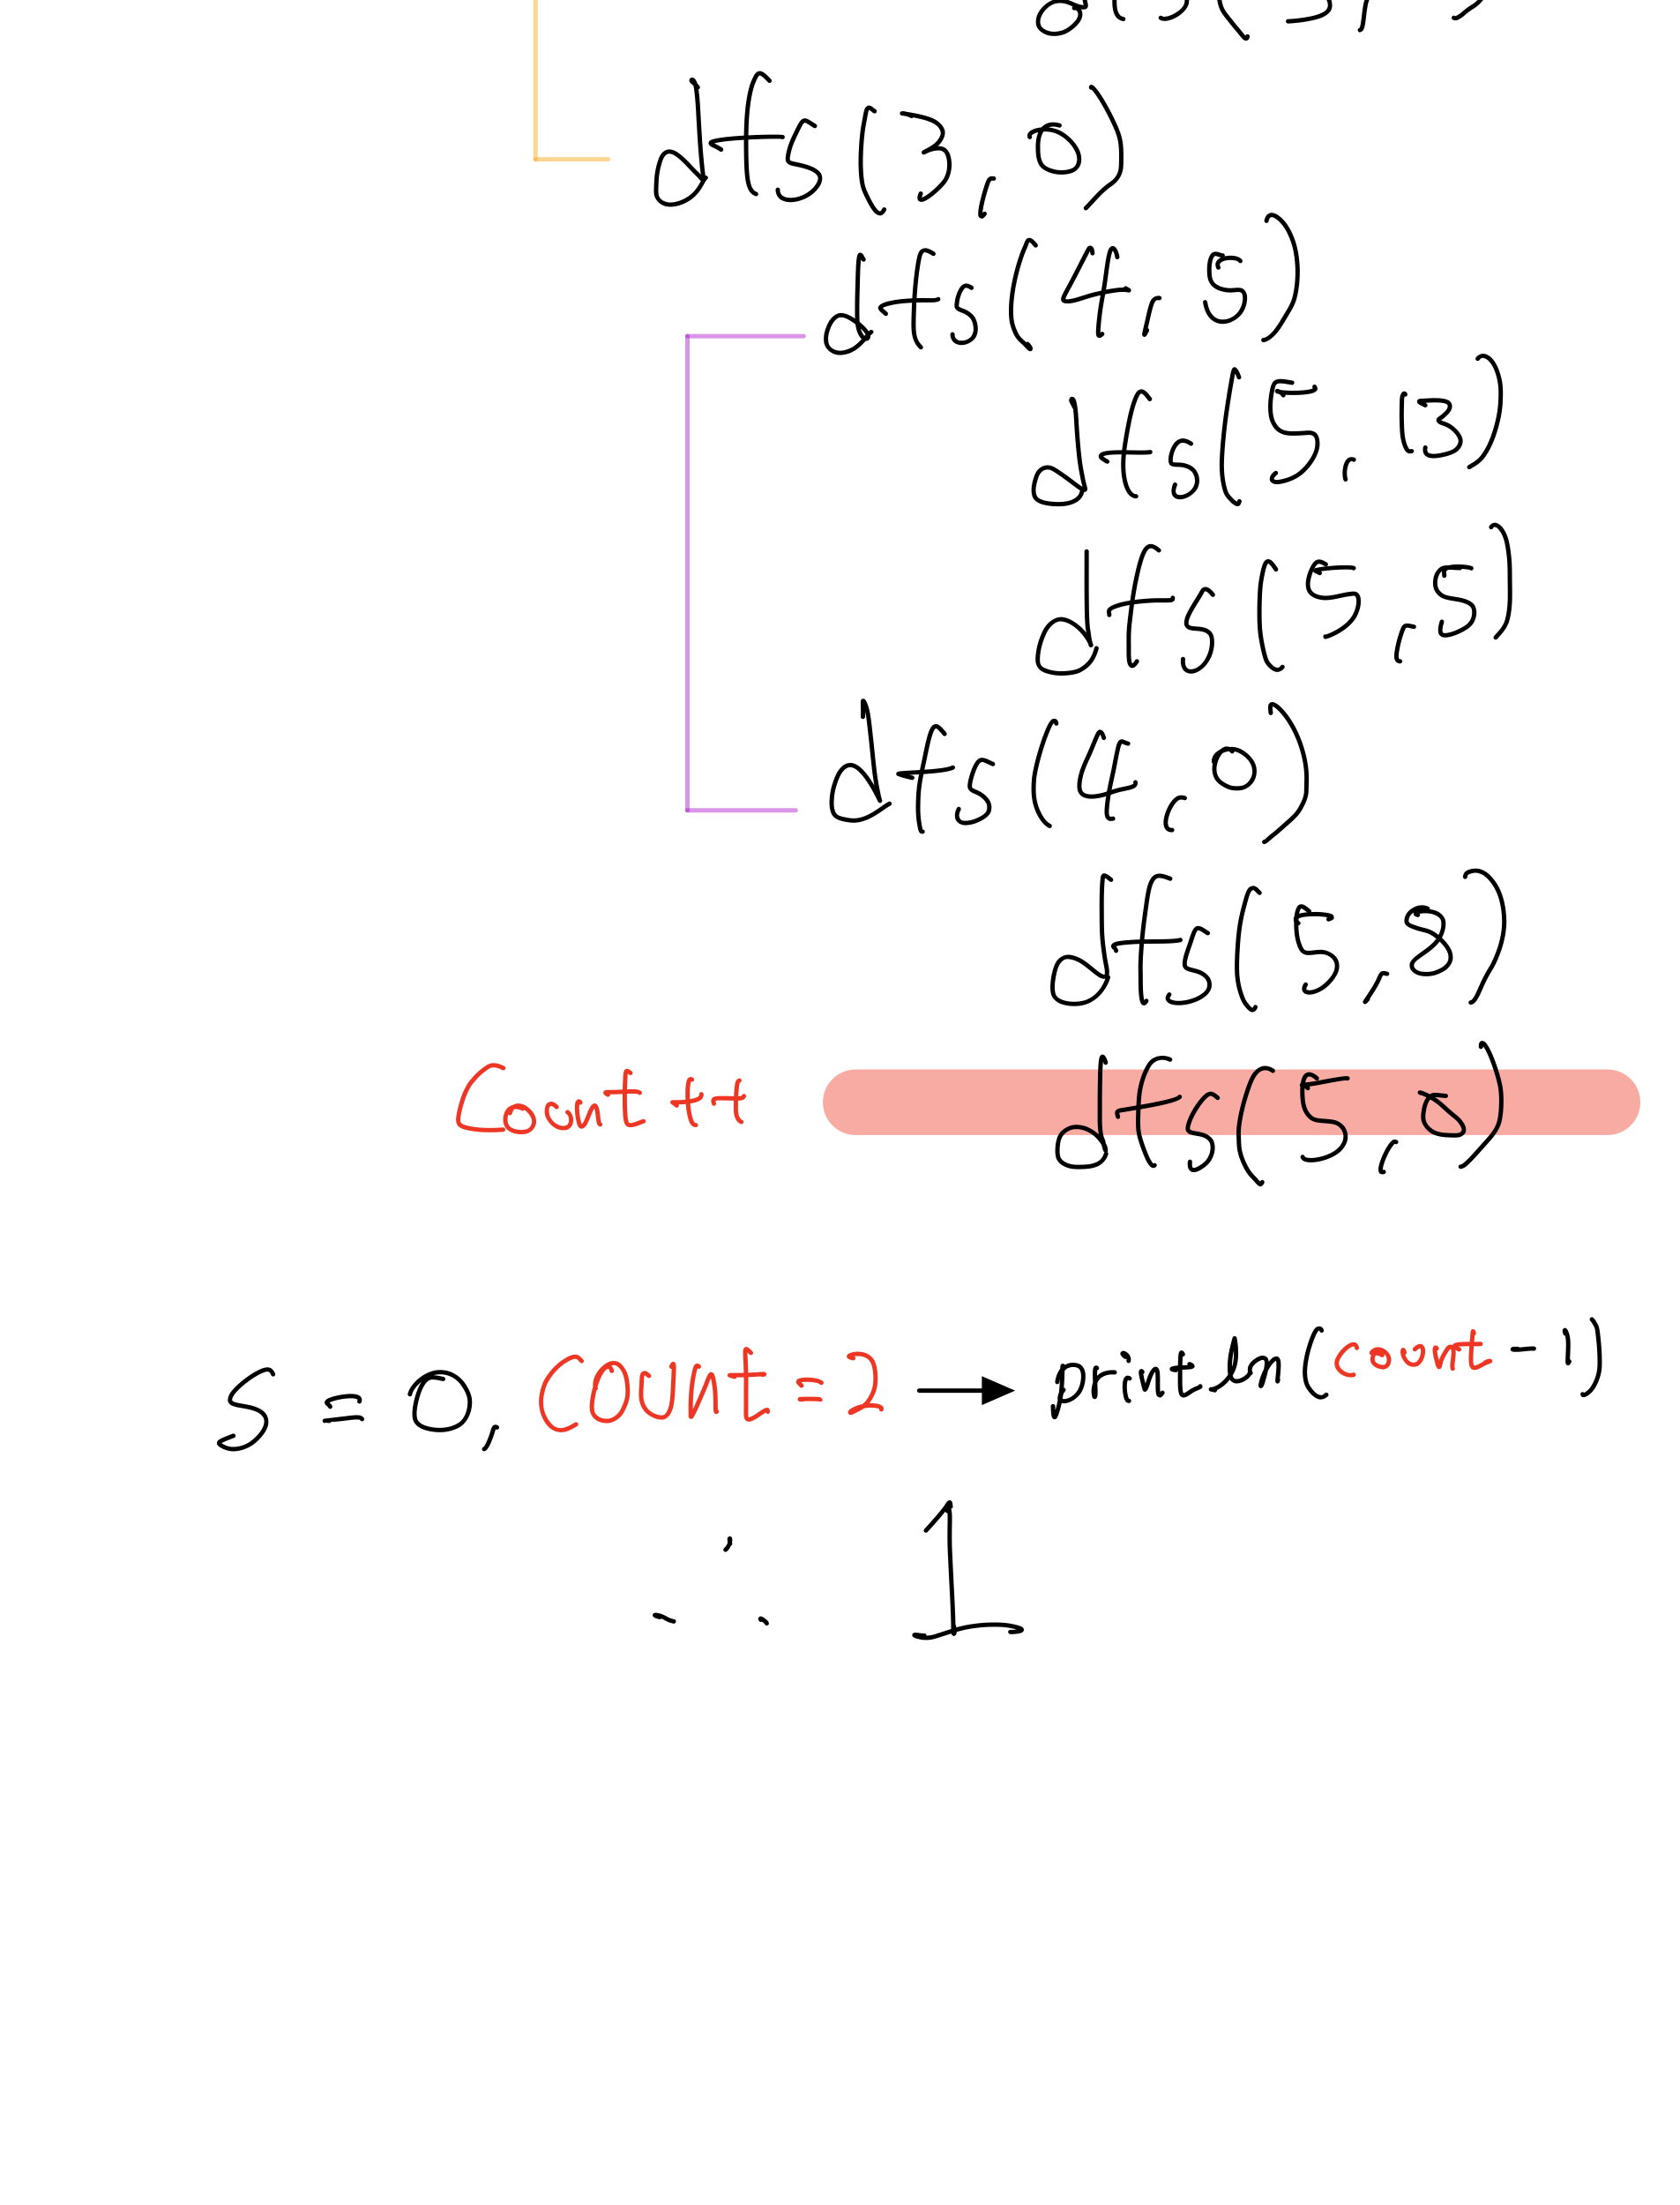 dfs(3, 0)
dfs(4, 5)
dfs(5, 13)
dfs(5, 5)
dfs(4, 0)
dfs(5, 8)
Count ++ dfs(5, 0)
S = 0, COUNt = 2 → println(count - 1)
∴ 1